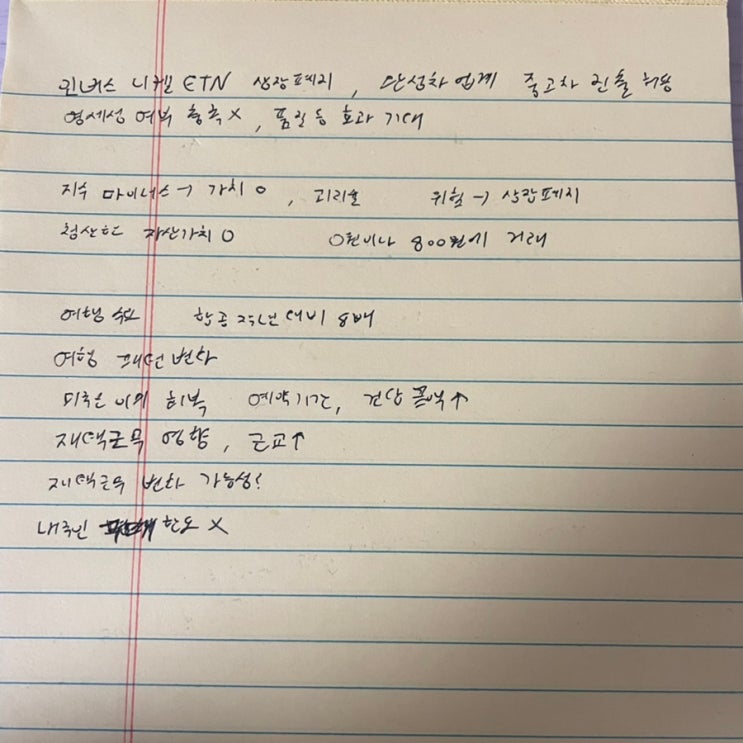 인버스 니켈 ETN 상장폐지, 완성차 업계 중고차 진출 허용
영세성 여부 충족 X, 품질 등 효과 기대
지수 마이너스 → 가치 0, 괴리율 위험 → 상장폐지
청산한 자산가치 0 0원이나 800원에 거래
여행 수요 항공 작년 대비 8배
여행 패턴 변화
미국은 이미 회복 예약기간, 건당 ↑
재택근무 영향, 근교↑
재택근무 변화 가능성?
내국인 한도 X